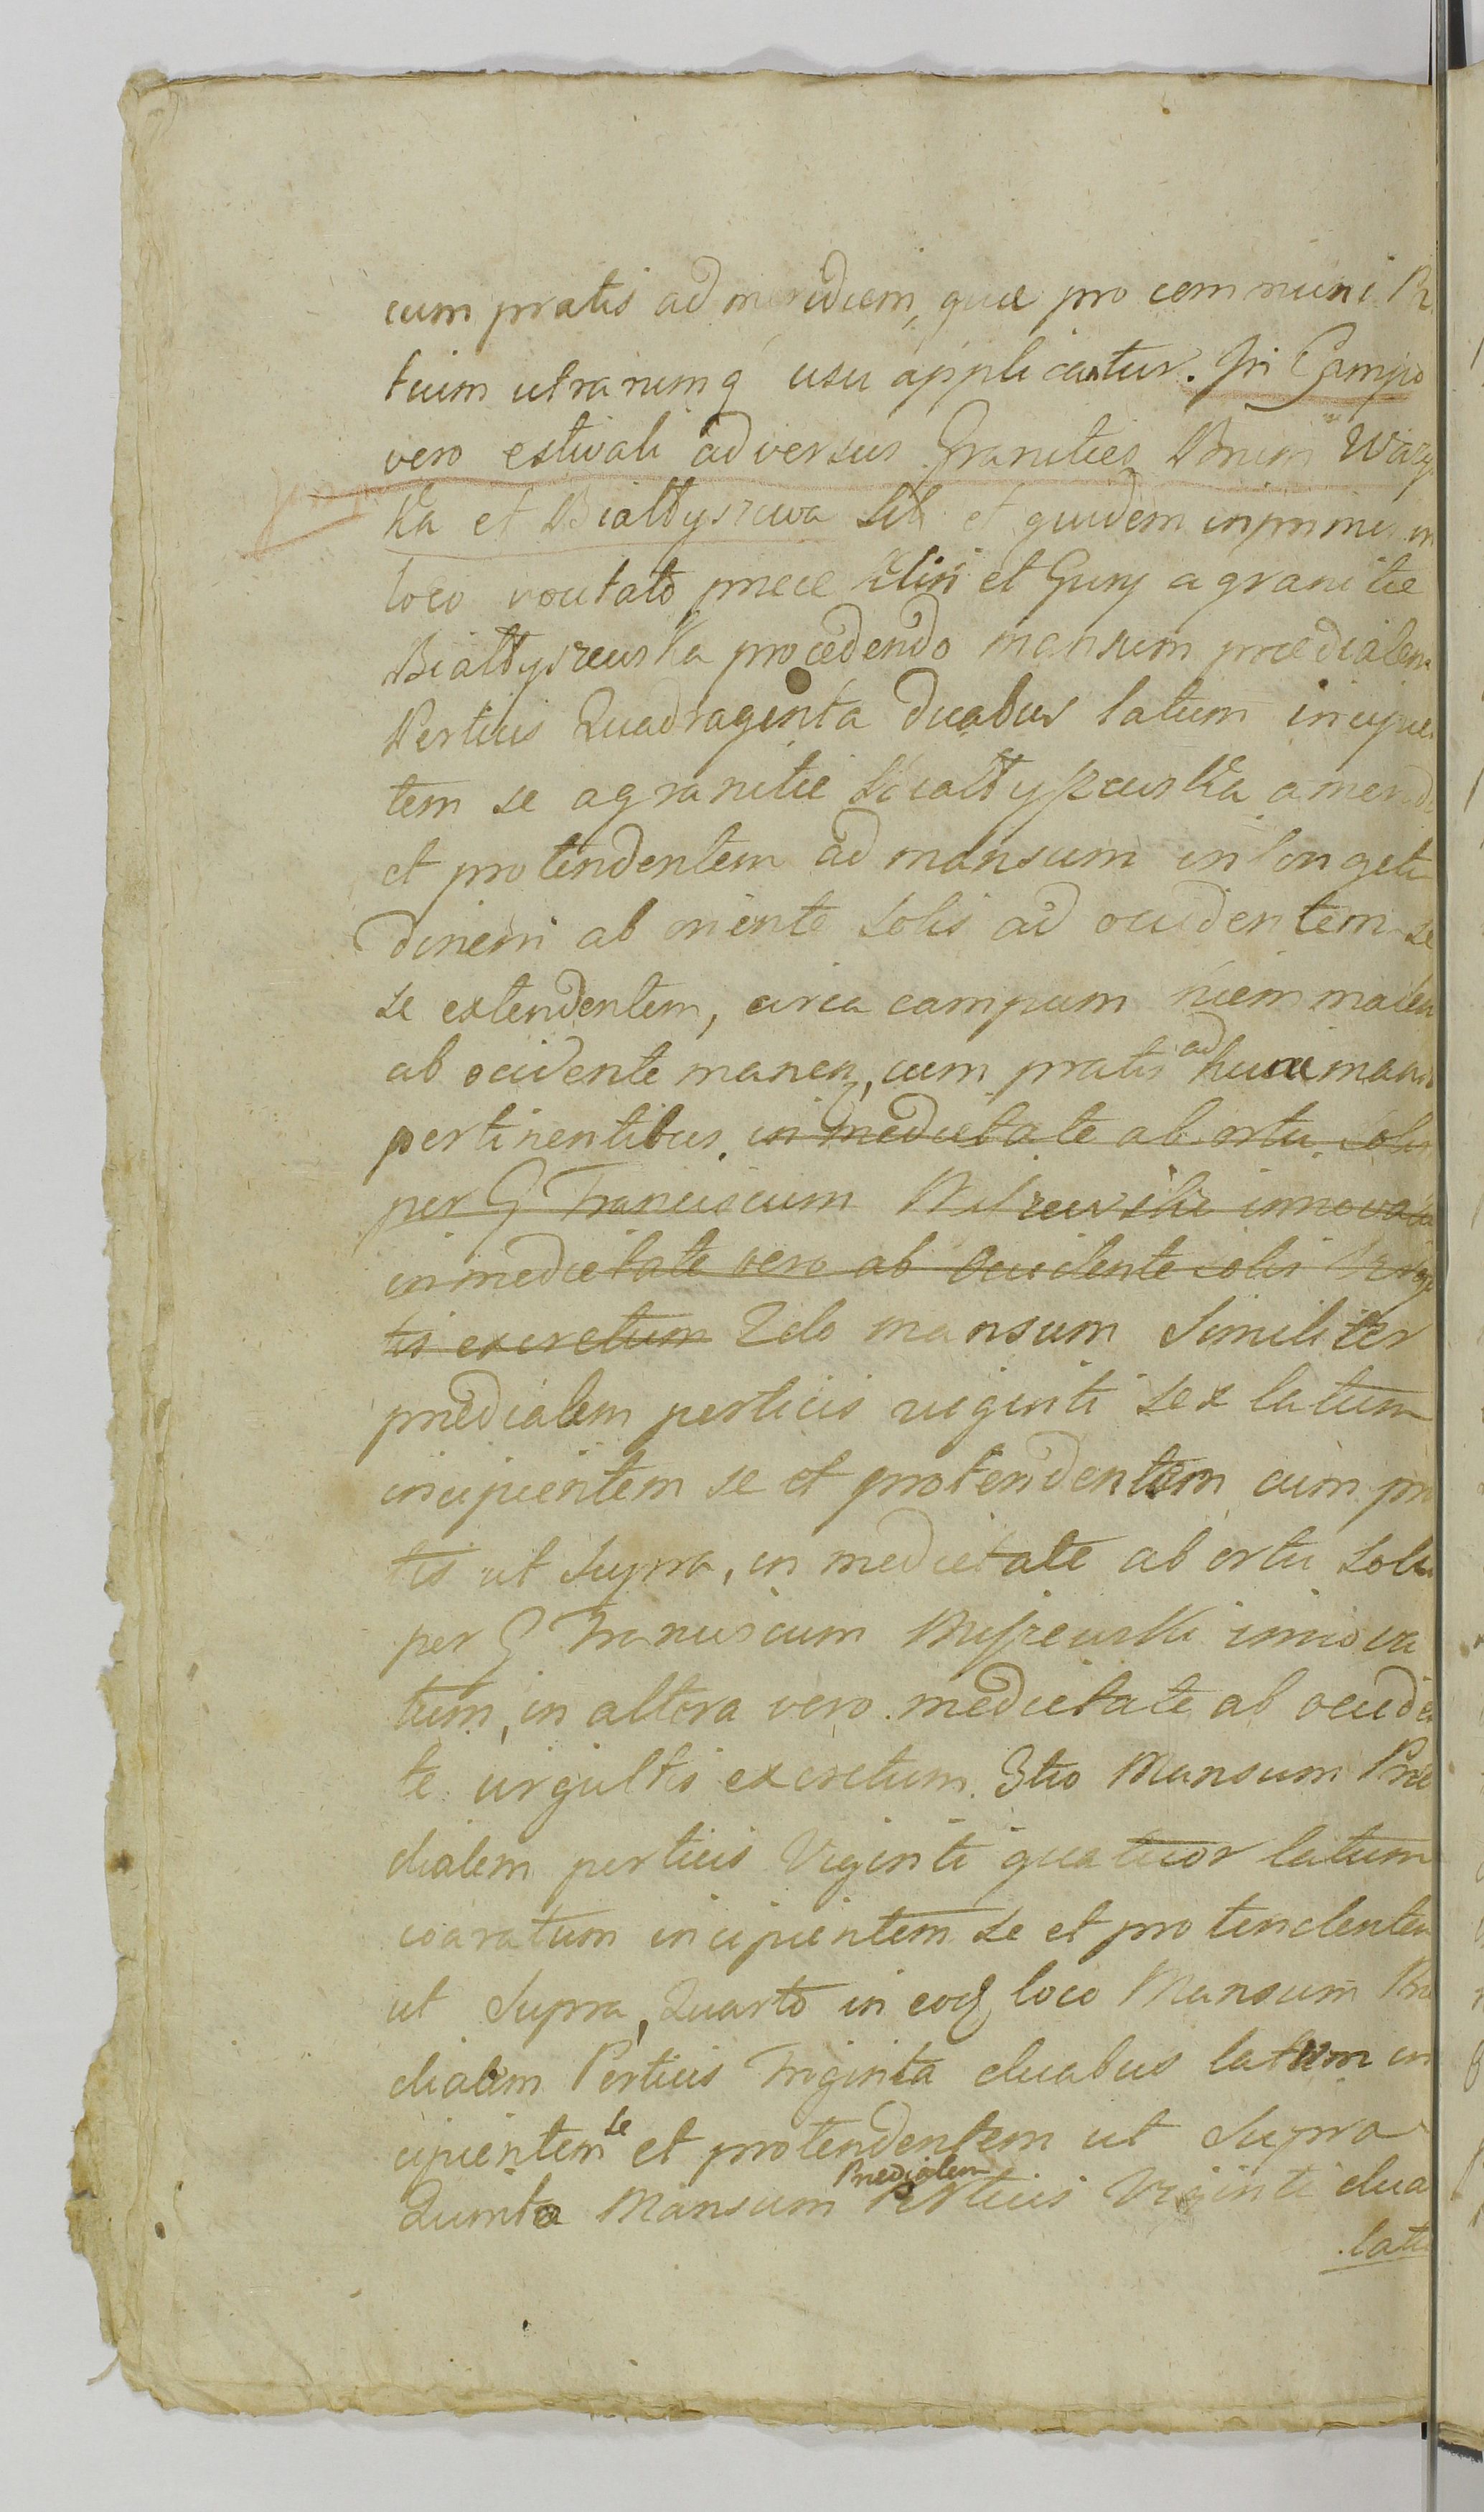 cum pratis ad meridiem, quæ pro communi
tium utrarumq usu applicantur. In Campo
vero estivali adversus Granities Bnum
ka et Biattyszewa Sit et quidem inprimis in
loco vocitato prece Kliń et Gury a granitie
Biattyszewska procedendo mansum prædialem
Perticis Quadraginta duabus latum incipien
tem se a granitie Biattyszewska a merid
et protendentem ad mansum in longitu
dinem ab oriente Solis ad occidentem se
se extendentem, circa campum hiemmalem
ab occidente manen, cum pratis ad hunc mans
pertinentibus. in medietate ab ortu solis
per G Franciscum innova
in medietate vero ab occidente solis
tis excretum 2do mansum Similiter
predialem perticis viginti sex latum
incipientem se et protendentem cum pra
tis ut Supra, in medietate ab ortu Solis
per G Franciscum Myszewski innova
tum, in altera vero medietate ab occiden
te virgultis excretum. 3tio Mansum Præ
dialem perticis Viginti quatuor latum
coaratum incipientem se et protendentem
ut Supra, Quarto in eod loco Mansum Præ
dialem Perticis Triginta duabus latum in
cipientem se et protendentem ut Supra
Quinto Mansum Predialem Perticis Viginti dua
latu